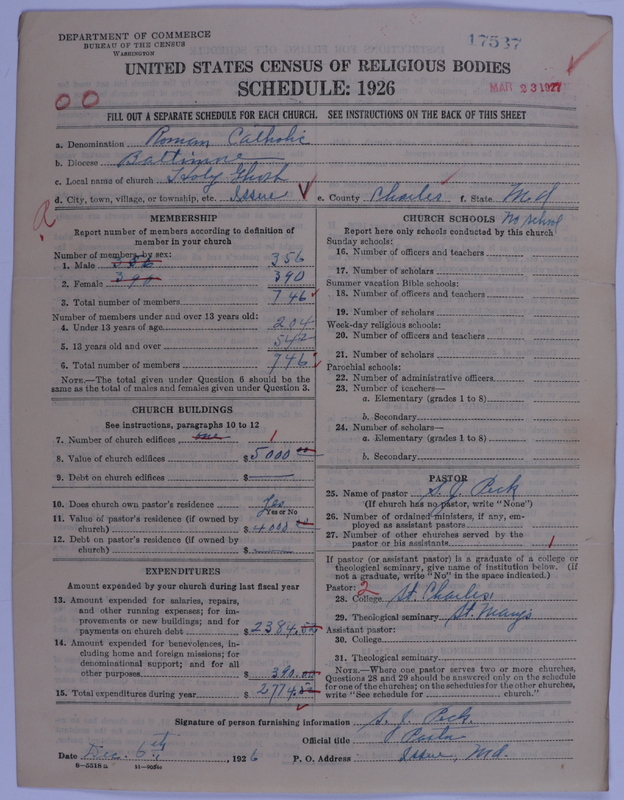 DEPARTMENT OF COMMERCE
BUREAU OF THE CENSUS
WASHINGTON
17537
UNITED STATES CENSUS OF RELIGIOUS BODIES
SCHEDULE: 1926
MAR 23 1927
FILL OUT A SEPARATE SCHEDULE FOR EACH CHURCH. SEE INSTRUCTIONS ON THE BACK OF THIS SHEET
a. Denomination Roman Catholic
b. Diocese Baltimore
c. Local name of church Holy Ghost
d. City, town, village, or township, etc. Issue e. County Charles f. State Md
MEMBERSHIP
Report number of members according to definition of
member in your church
Number of members by sex:
1. Male 356
2. Female 390
3. Total number of members 746
Number of members under and over 13 years old:
4. Under 13 years of age 204
5. 13 years old and over 542
6. Total number of members 746
NOTE.—The total given under Question 6 should be the
same as the total of males and females given under Question 3.
CHURCH BUILDINGS
See instructions, paragraphs 10 to 12
7. Number of church edifices one 1
8. Value of church edifices $5000 00
9. Debt on church edifices $
10. Does church own pastor's residence Yes
Yes or No
11. Value of pastor's residence (if owned by
church) $4000 00
12. Debt on pastor's residence (if owned by
church) $
EXPENDITURES
Amount expended by your church during last fiscal year
13. Amount expended for salaries, repairs,
and other running expenses; for im-
provements or new buildings; and for
payments on church debt $2384.00
14. Amount expended for benevolences, in-
cluding home and foreign missions; for
denominational support; and for all
other purposes $390.00
15. Total expenditures during year $2774.00
CHURCH SCHOOLS No school
Report here only schools conducted by this church
Sunday schools:
16. Number of officers and teachers
17. Number of scholars
Summer vacation Bible schools:
18. Number of officers and teachers
19. Number of scholars
Week-day religious schools:
20. Number of officers and teachers
21. Number of scholars
Parochial schools:
22. Number of administrative officers
23. Number of teachers—
a. Elementary (grades 1 to 8)
b. Secondary
24. Number of scholars—
a. Elementary (grades 1 to 8)
b. Secondary
PASTOR
25. Name of pastor S. J. Peck
(If church has no pastor, write "None")
26. Number of ordained ministers, if any, em-
ployed as assistant pastors
27. Number of other churches served by the
pastor or his assistants 1
If pastor (or assistant pastor) is a graduate of a college or
theological seminary, give name of institution below. (if
not a graduate, write "No" in the space indicated.)
Pastor: 2
28. College St. Charles'
29. Theological seminary St. Mary's
Assistant pastor:
30. College
31. Theological seminary
NOTE.—Where one pastor serves two or more churches,
Questions 28 and 29 should be answered only on the schedule
for one of the churches; on the schedules for the other churches,
write "See schedule for church."
Signature of person furnishing information S. J. Peck
Official title Pastor
Date Dec. 6th, 1926 P. O. Address Issue, Md.
8-5518a 11-9056c